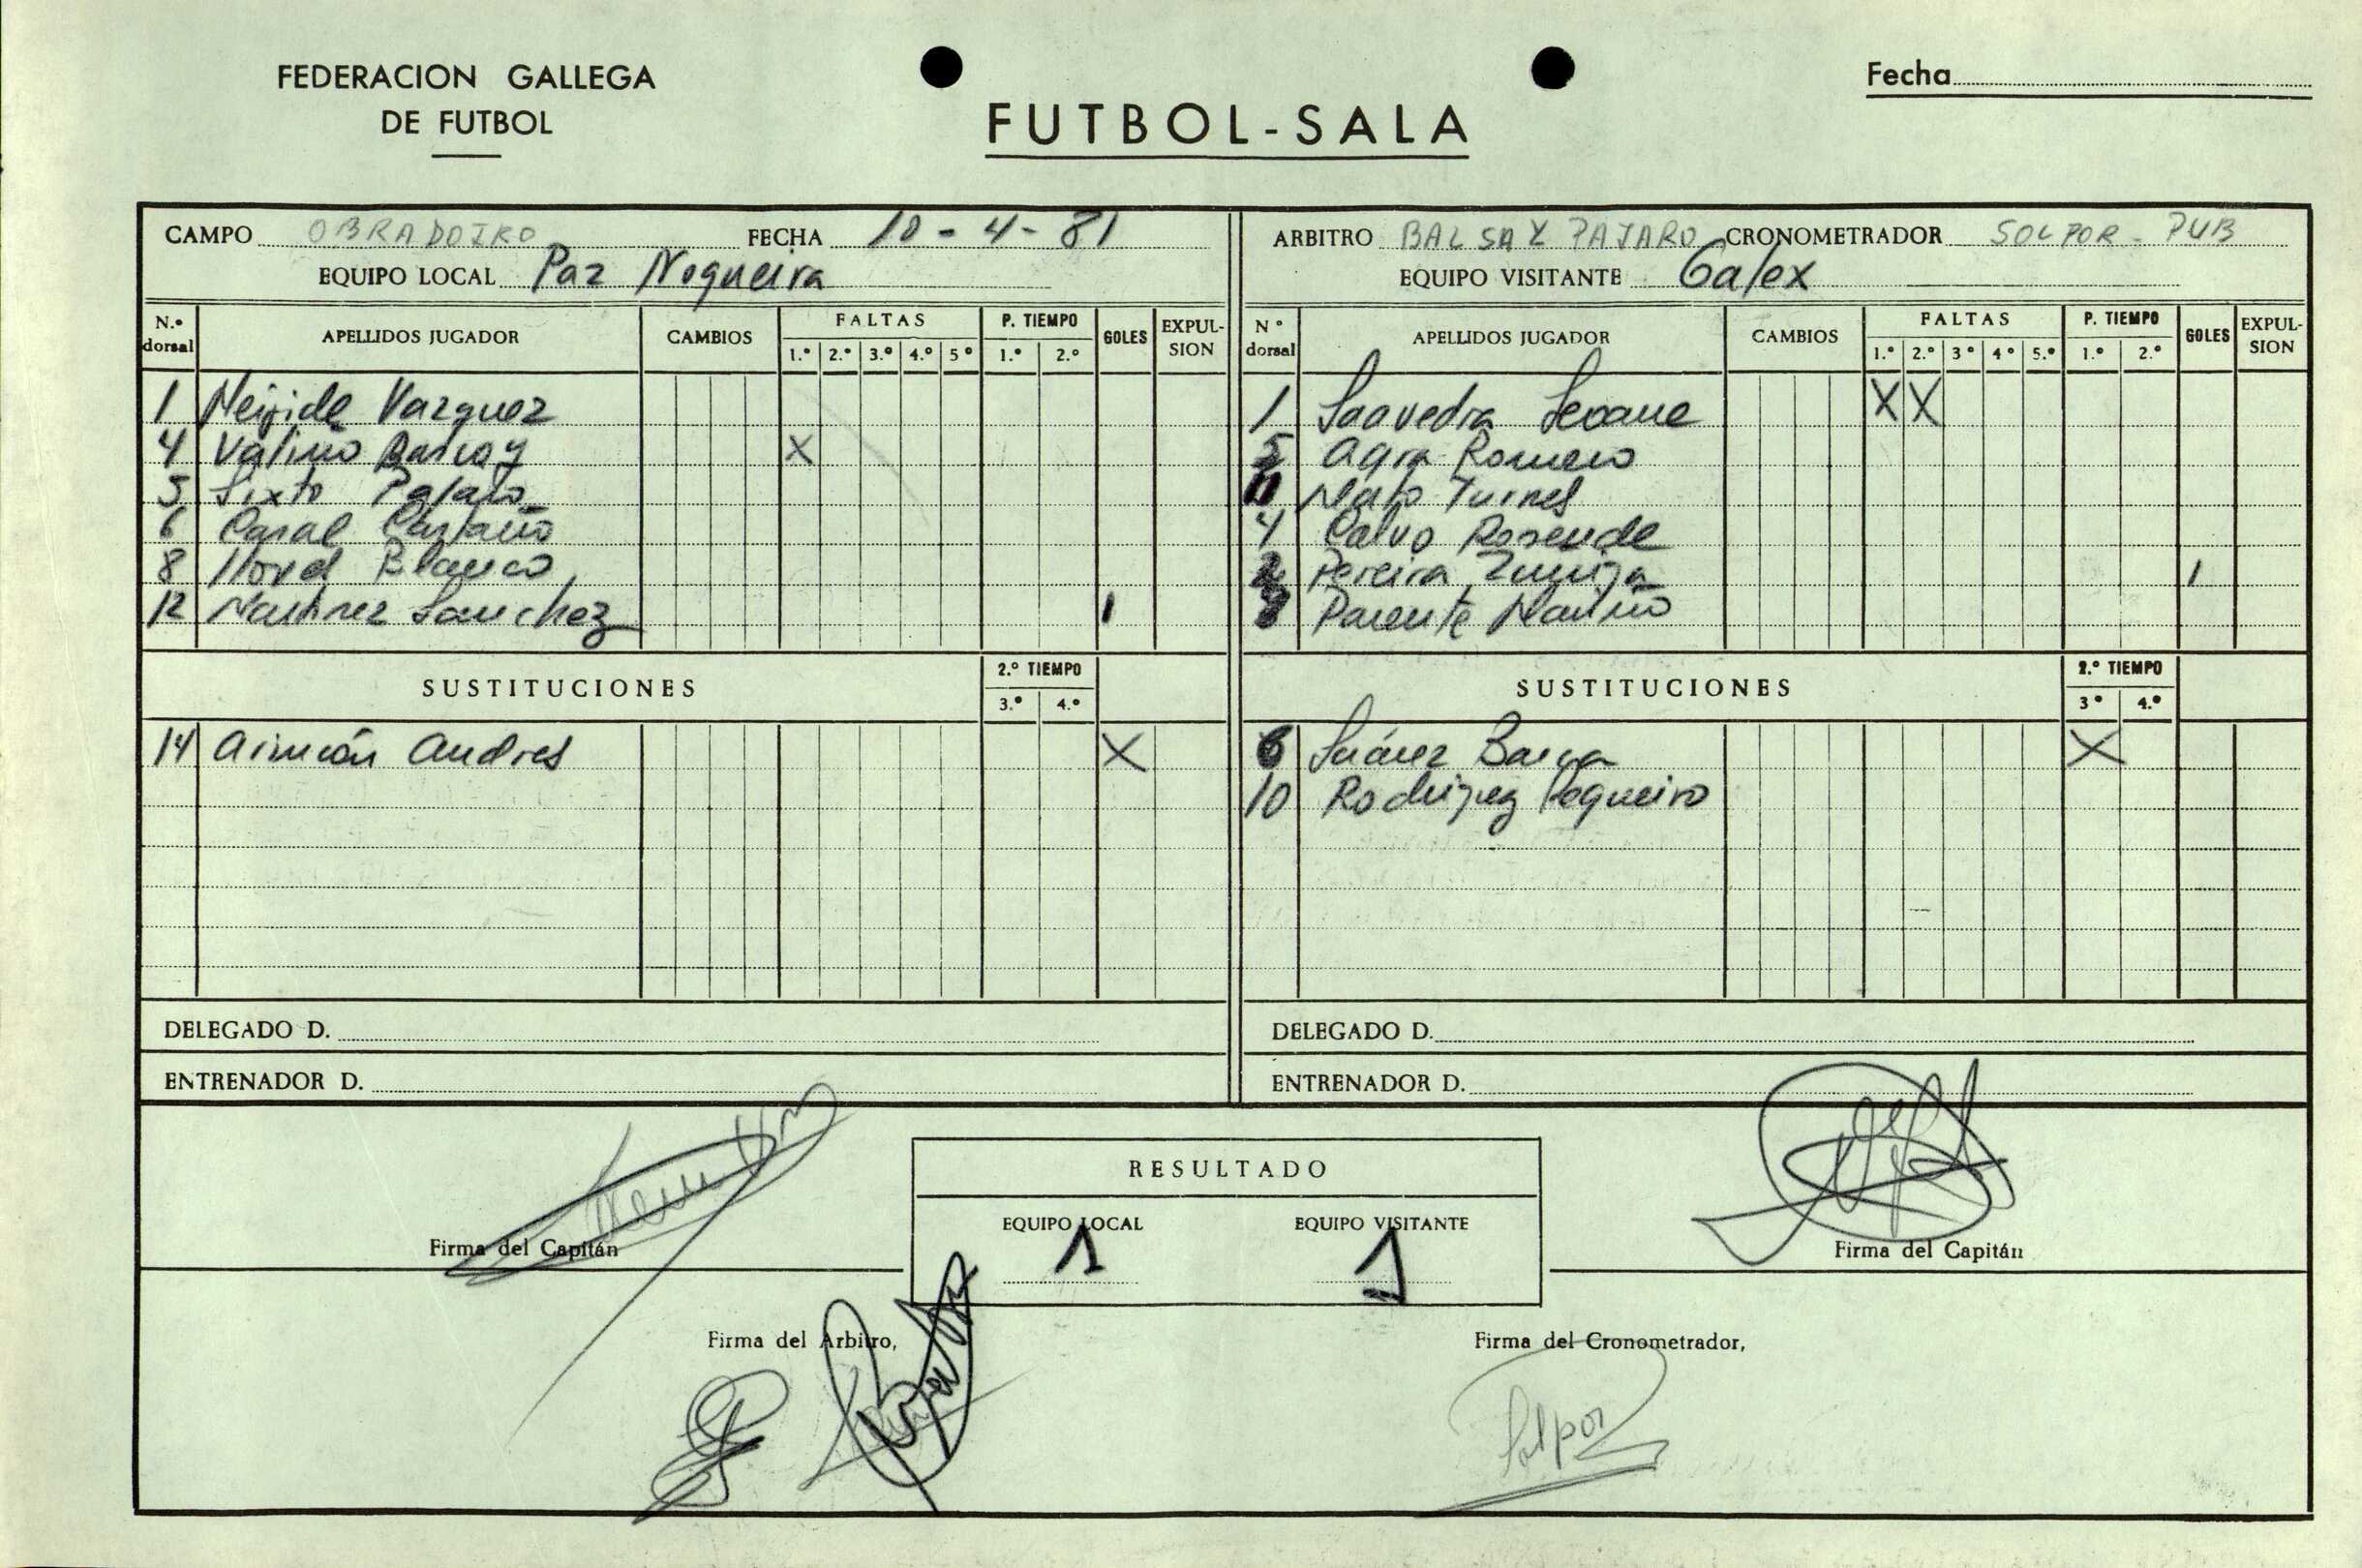 FEDERACION GALLEGA
DE FUTBOL
FUTBOL-SALA
Fecha
CAMPO OBRADOIRO FECHA 10-4-81
EQUIPO LOCAL Paz Nogueira
ARBITRO BALSA Y PAJARO CRONOMETRADOR SOLPOR-PUB
EQUIPO VISITANTE Galex
N.º dorsal APELLIDOS JUGADOR CAMBIOS FALTAS 1.º 2.º 3.º 4.º 5º P. TIEMPO 1.º 2.º GOLES EXPULSION
1 Neijide Vazquez
4 Valiño Barcoy X
5 Sixto Pajaro
6 Casal Castaño
8 Blanco
12 Martinez Sanchez 1
SUSTITUCIONES 2.º TIEMPO 3.º 4.º
14 Andres X
DELEGADO D.
ENTRENADOR D.
Nº dorsal APELLIDOS JUGADOR CAMBIOS FALTAS 1.º 2.º 3º 4º 5.º P. TIEMPO 1.º 2.º GOLES EXPULSION
1 Saavedra Seoane X X
5 Agra Romero
11 Mato Turnes
4 Calvo Rosende
2 Pereira Zuñiga 1
Parente Mariño
SUSTITUCIONES 2.º TIEMPO 3º 4.º
6 Suárez Barca X
10 Rodriguez Pequeiro
DELEGADO D.
ENTRENADOR D.
Firma del Capitán
RESULTADO
EQUIPO LOCAL EQUIPO VISITANTE
1 1
Firma del Capitán
Firma del Arbitro,
Firma del Cronometrador,
Solpor